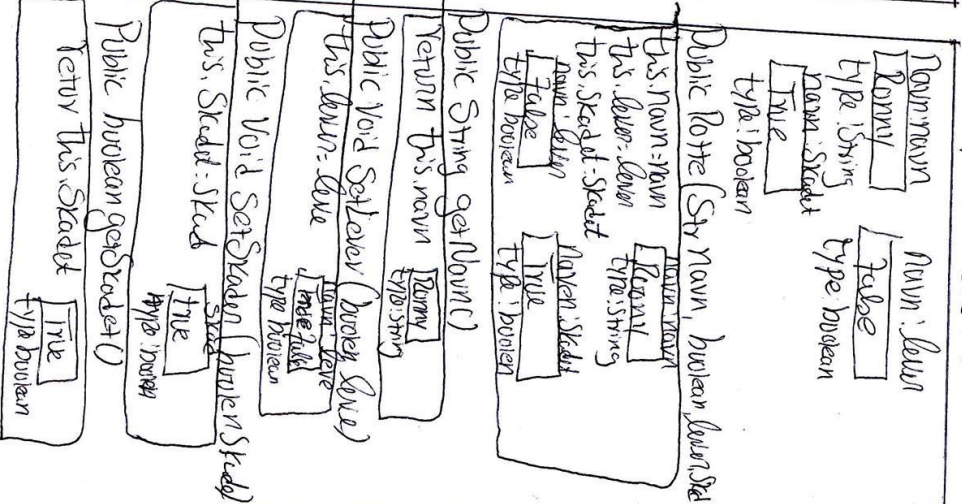 Navn: navn
Ronny
type: String
navn: skadet
True
type: boolean
Navn: lever
False
type: boolean
Public Rotte (Str navn, boolean lever, Skad
this.navn = navn
this.lever = lever
this.skadet = skadet
navn: lever
False
type boolean
navn: navn
Ronny
type: String
Naven: Skadet
True
type: boolen
Public String getNavn()
return this.navn
Ronny
type: string
Public Void SetLever (boolen leve)
this.lever = leve
navn leve
False
type boolean
Public Void SetSkaden (boolen Skade)
this.Skadet = Skad
Skade
True
type: boolean
Public boolean getSkadet()
retur this.Skadet
True
type boolean